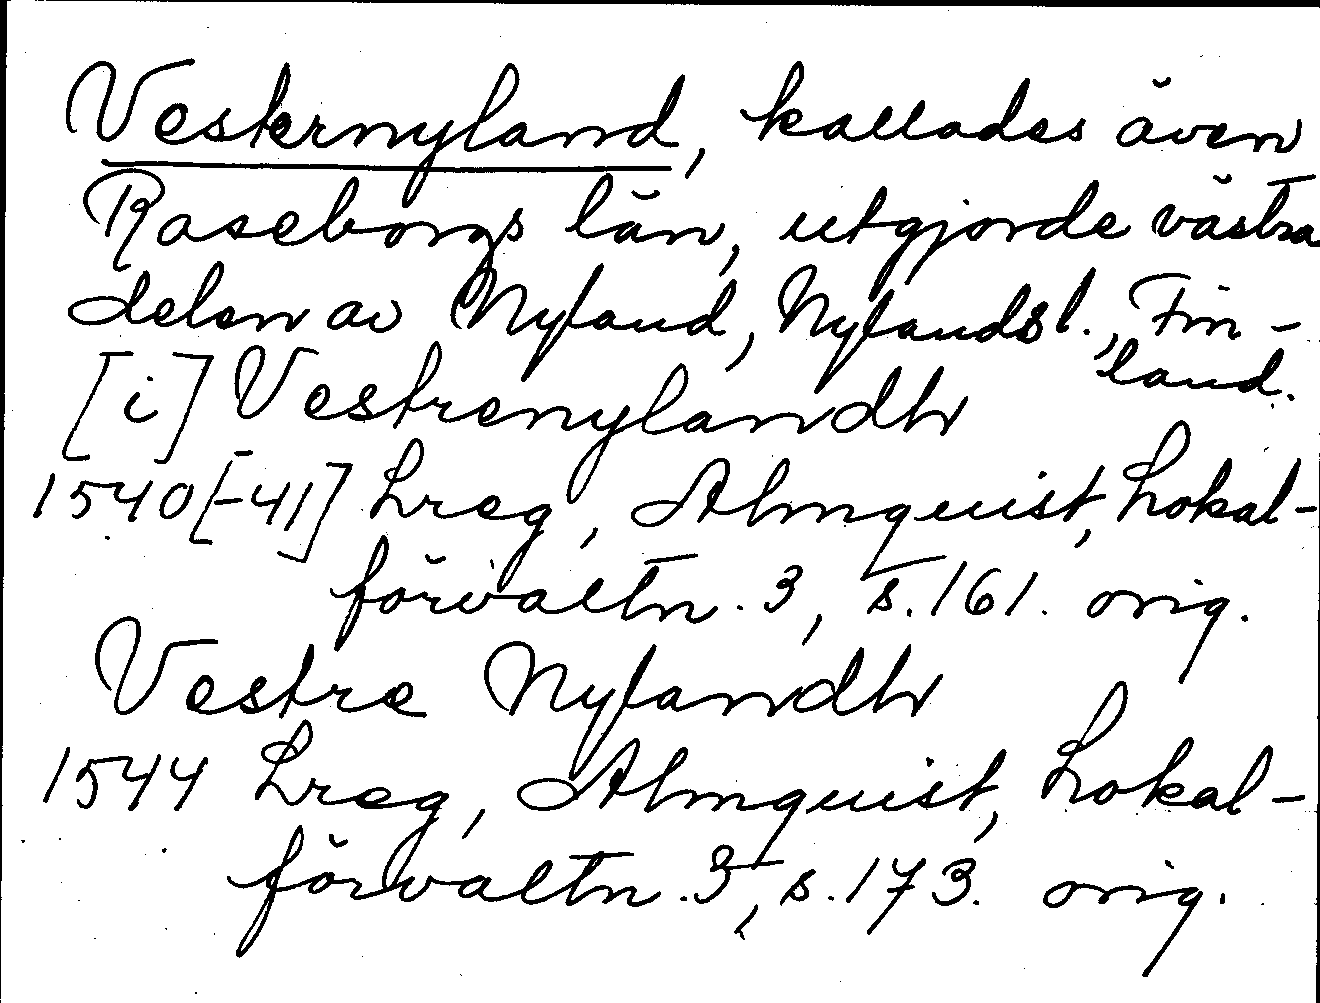 Vesternyland, kallades även
Raseborgs län, utgjorde västra
delen av Nyland, Nylandsl., Fin-
land.
[i] Vestrenylandh
1540[-41] Lreg, Almquist, Lokal-
förvaltn. 3, s. 161. orig.
Vestre Nylandh
1544 Lreg, Almquist, Lokal-
förvaltn. 3, s. 173. orig.